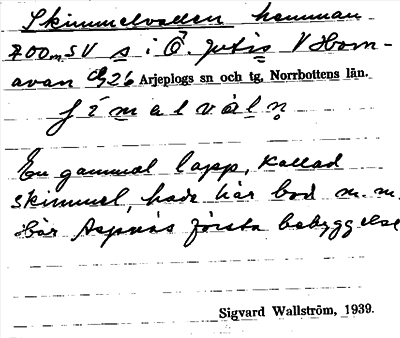 Skimmelvallen hemman
700 m SV s i Ö. Jutis V Horn-
avan Arjeplogs sn och tg, Norrbottens län.
En gammal lapp, kallad
skimmel, hade här bod m.m.
där Aspnäs första bebyggelse
Sigvard Wallström, 1939.